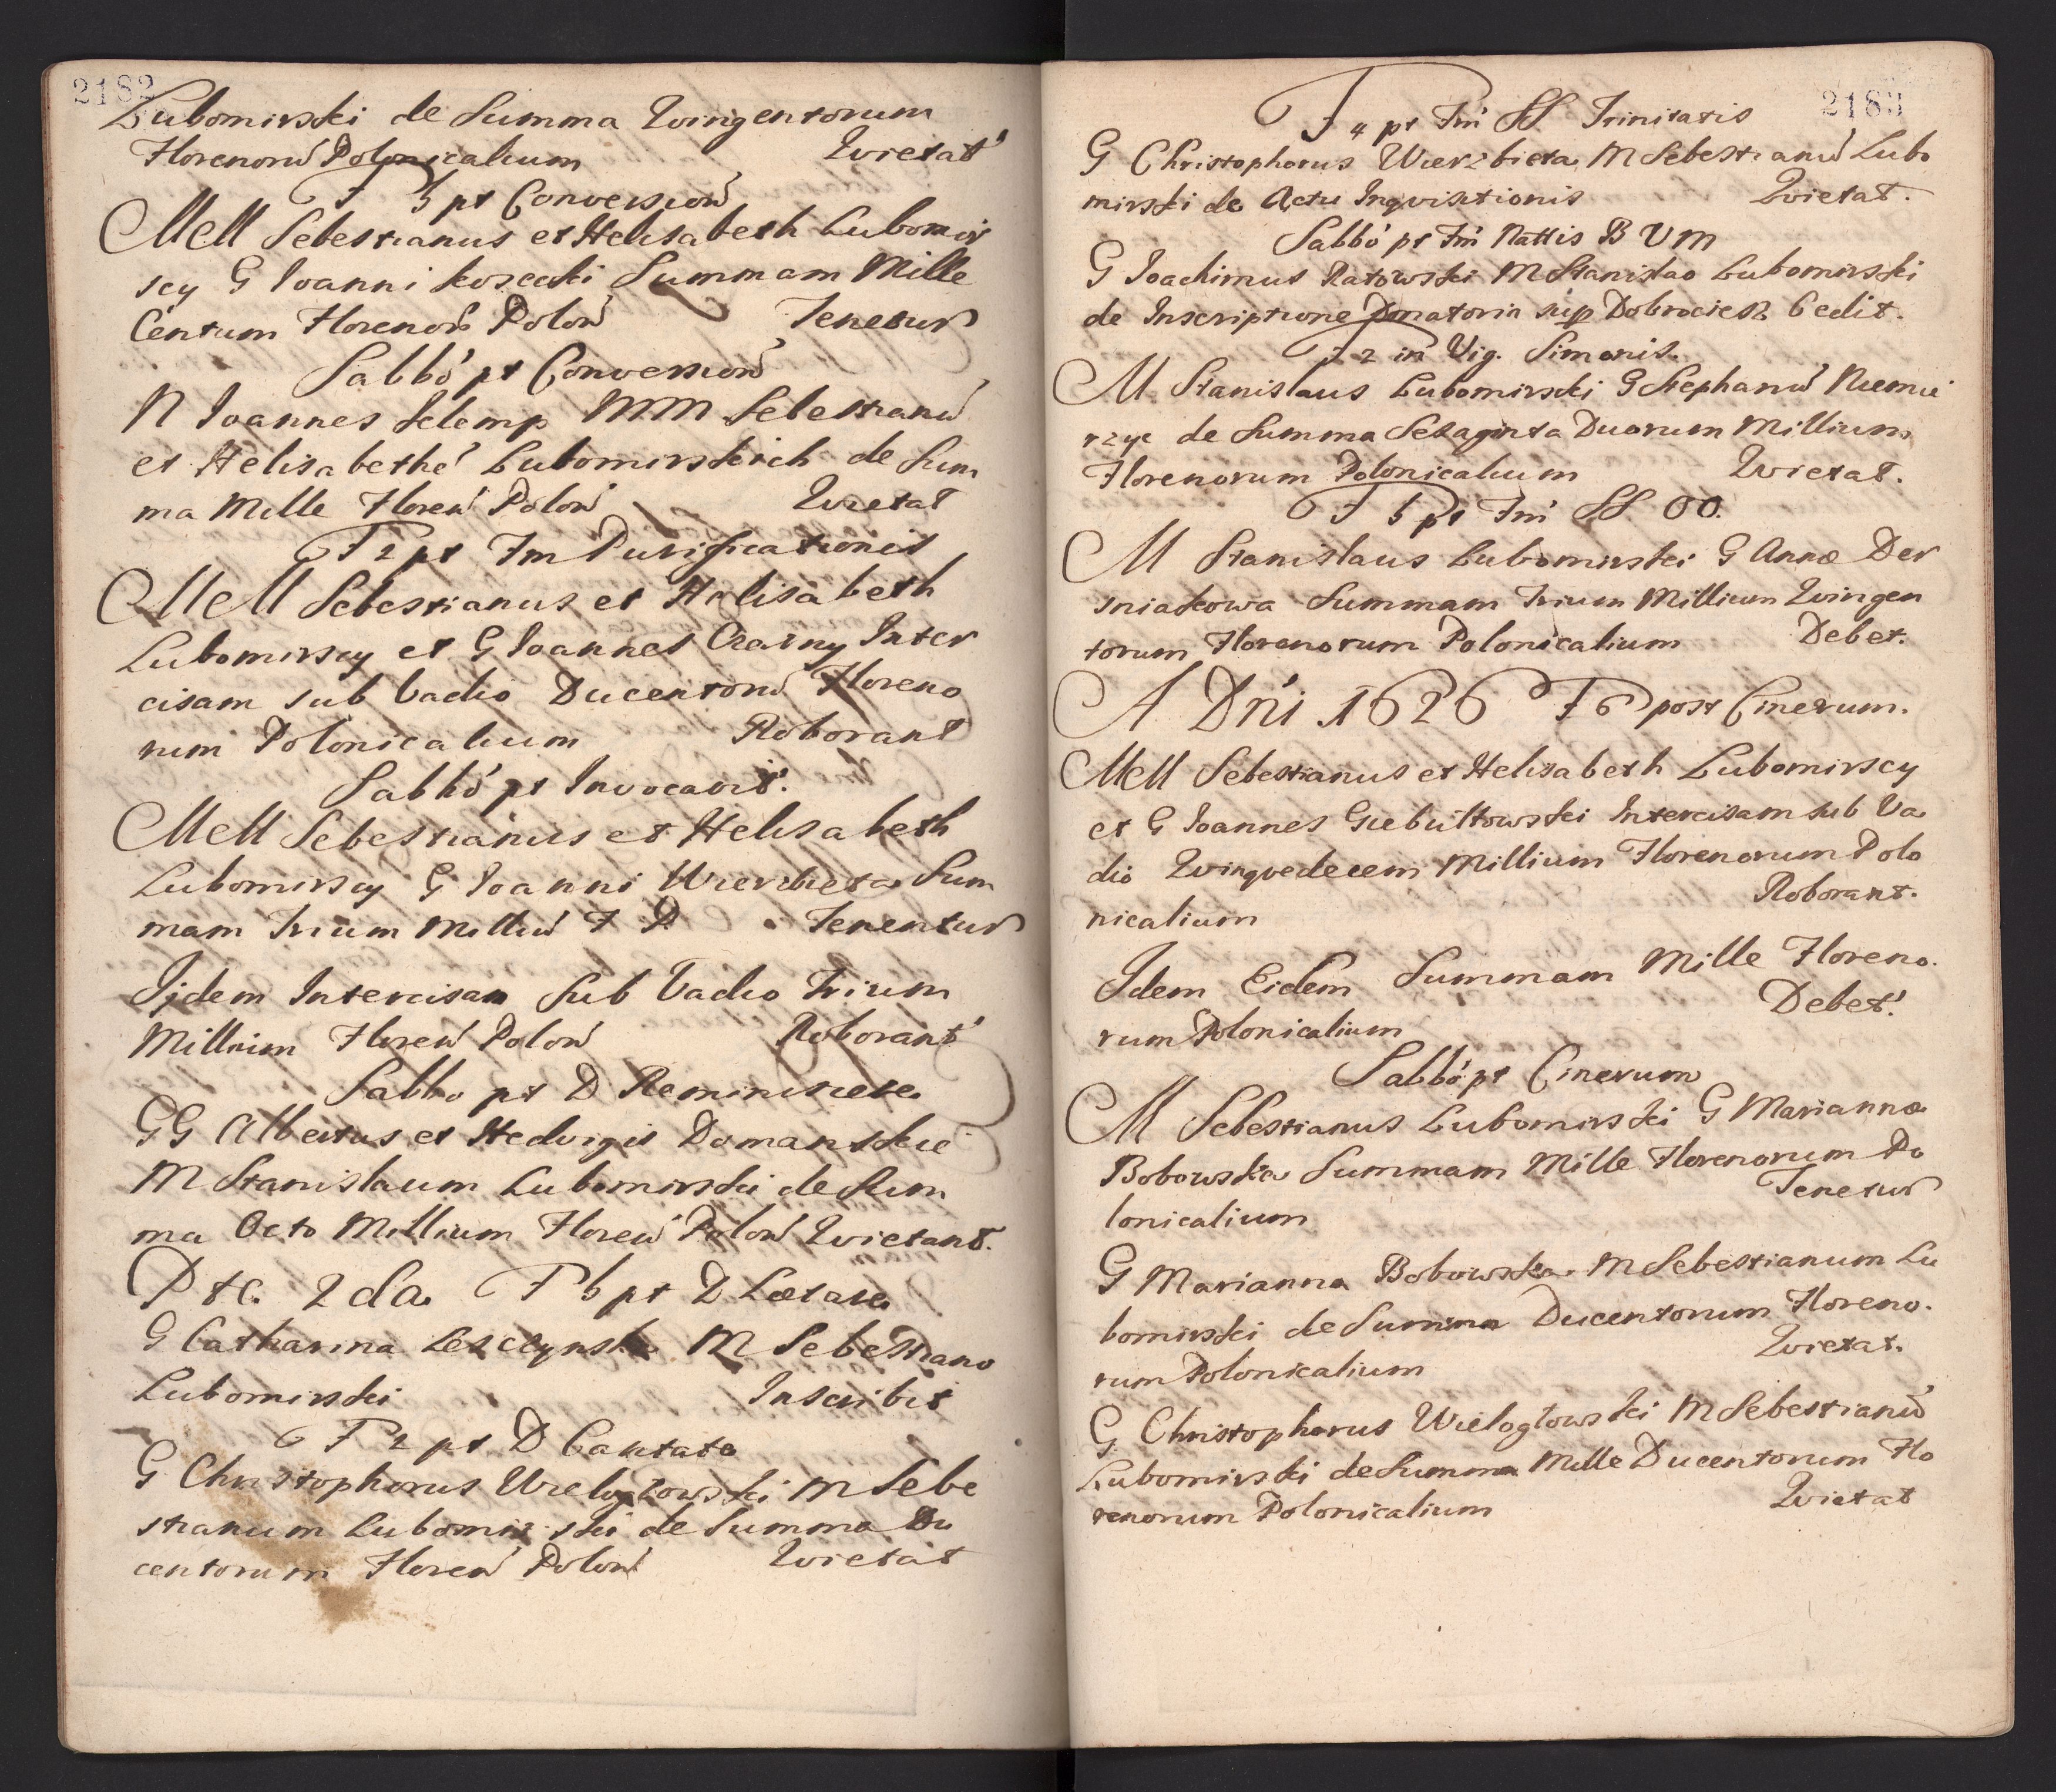 2182
Lubomirski de Summa Qvingentorum
Florenorū Polonicalium Qvietat
F 5 pt Conversionū
MM Sebestianus et Helisabeth Lubomir
scy G Ioanni Summam Mille
Centum Florenorū Polorū Tenetur
Sabbo pt Conversionū
N Ioannes Selemp MM Sebestianū
et Helisabethe Lubomirskich de Sum
ma Mille Floren Polon Qvietat
F 2 pt Fm Purificationis
MM Sebestianus et Halisabeth
Lubomirscy et G Ioannes Czarny Inter
cisam sub Vadio Ducentorū Floreno
rum Polonicalium Roborant
Sabbo pt Invocavit.
MM Sebestianus et Helisabeth
Lubomirscy G Ioanni Wierzbieta Sum
mam Trium Milliū F P. Tenentur
Ijdem Intercisam Sub Vadio Trium
Millium Floren Polon Roborant
Sabbo pt D Reminiscere
GG Albertus et Hedvigis Domanskie
M Stanislaum Lubomirski de Sum
ma Octo Millium Floren Polon Qvietant.
P t C. 2da F 5 pt D Lætare
G Catharina Leszczynska M Sebestiano
Lubomirski Inscribit
F 2 pt D Cantate
G Christophorus Wielogłowski M Sebe
stianum Lubomirski de Summa Du
centorum Floren Polon Qvietat
2183
F 4 pt Fm SS Trinitatis
G Christophorus Wierzbieta M Sebestianū Lubo
mirski de Actu Inqvisitionis Qvietat.
Sabbo pt Fm Nattis B V M
G Ioachimus Ratowski M Stanislao Lubomirski
de Inscriptione Donatoria sup Dobrociesz Cedit.
F 2 in Vig. Simonis.
M Stanislaus Lubomirski G Stephanū Niemie
rzyc de Summa Sexaginta Duorum Millium
Florenorum Polonicalium Qvietat.
F 5 pt Fm SS OO.
M Stanislaus Lubomirski G Annæ Der
sniakowa Summam Trium Millium Qvingen
torum Florenorum Polonicalium Debet.
A Dni 1626 F 6 post Cinerum.
MM Sebestianus et Helisabeth Lubomirscy
et G Ioannes Giebułtowski Intercisam sub Va
dio Qvinqvedecem Millium Florenorum Polo
nicalium Roborant.
Idem Eidem Summam Mille Floreno.
rum Polonicalium Debet.
Sabbo pt Cinerum
M Sebestianus Lubomirski G Mariannæ
Bobowska Summam Mille Florenorum Po
lonicalium Tenetur
G Marianna Bobowska M Sebestianum Lu
bomirski de Summa Ducentorum Floreno.
rum Polonicalium Qvietat.
G Christophorus Wielogłowski M Sebestianū
Lubomirski de Summa Mille Ducentorum Flo
renorum Polonicalium Qvietat